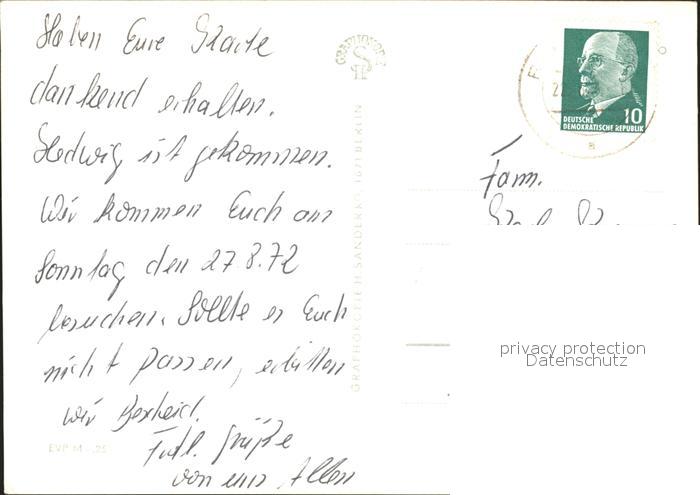 Haben Eure Karte
dankend erhalten.
Hedwig ist gekommen.
Wir kommen Euch am
Sonntag den 27.8.72
besuchen. Sollte es Euch
nicht passen, erbitten
wir Bescheid.
Frdl. Grüße
von uns Allen
EVP M -.25
GRAPHOKOPIE H. SANDER KG, 1071 BERLIN
GRAPHOKOPIE
DEUTSCHE
DEMOKRATISCHE REPUBLIK
10
Fam.
privacy protection
Datenschutz